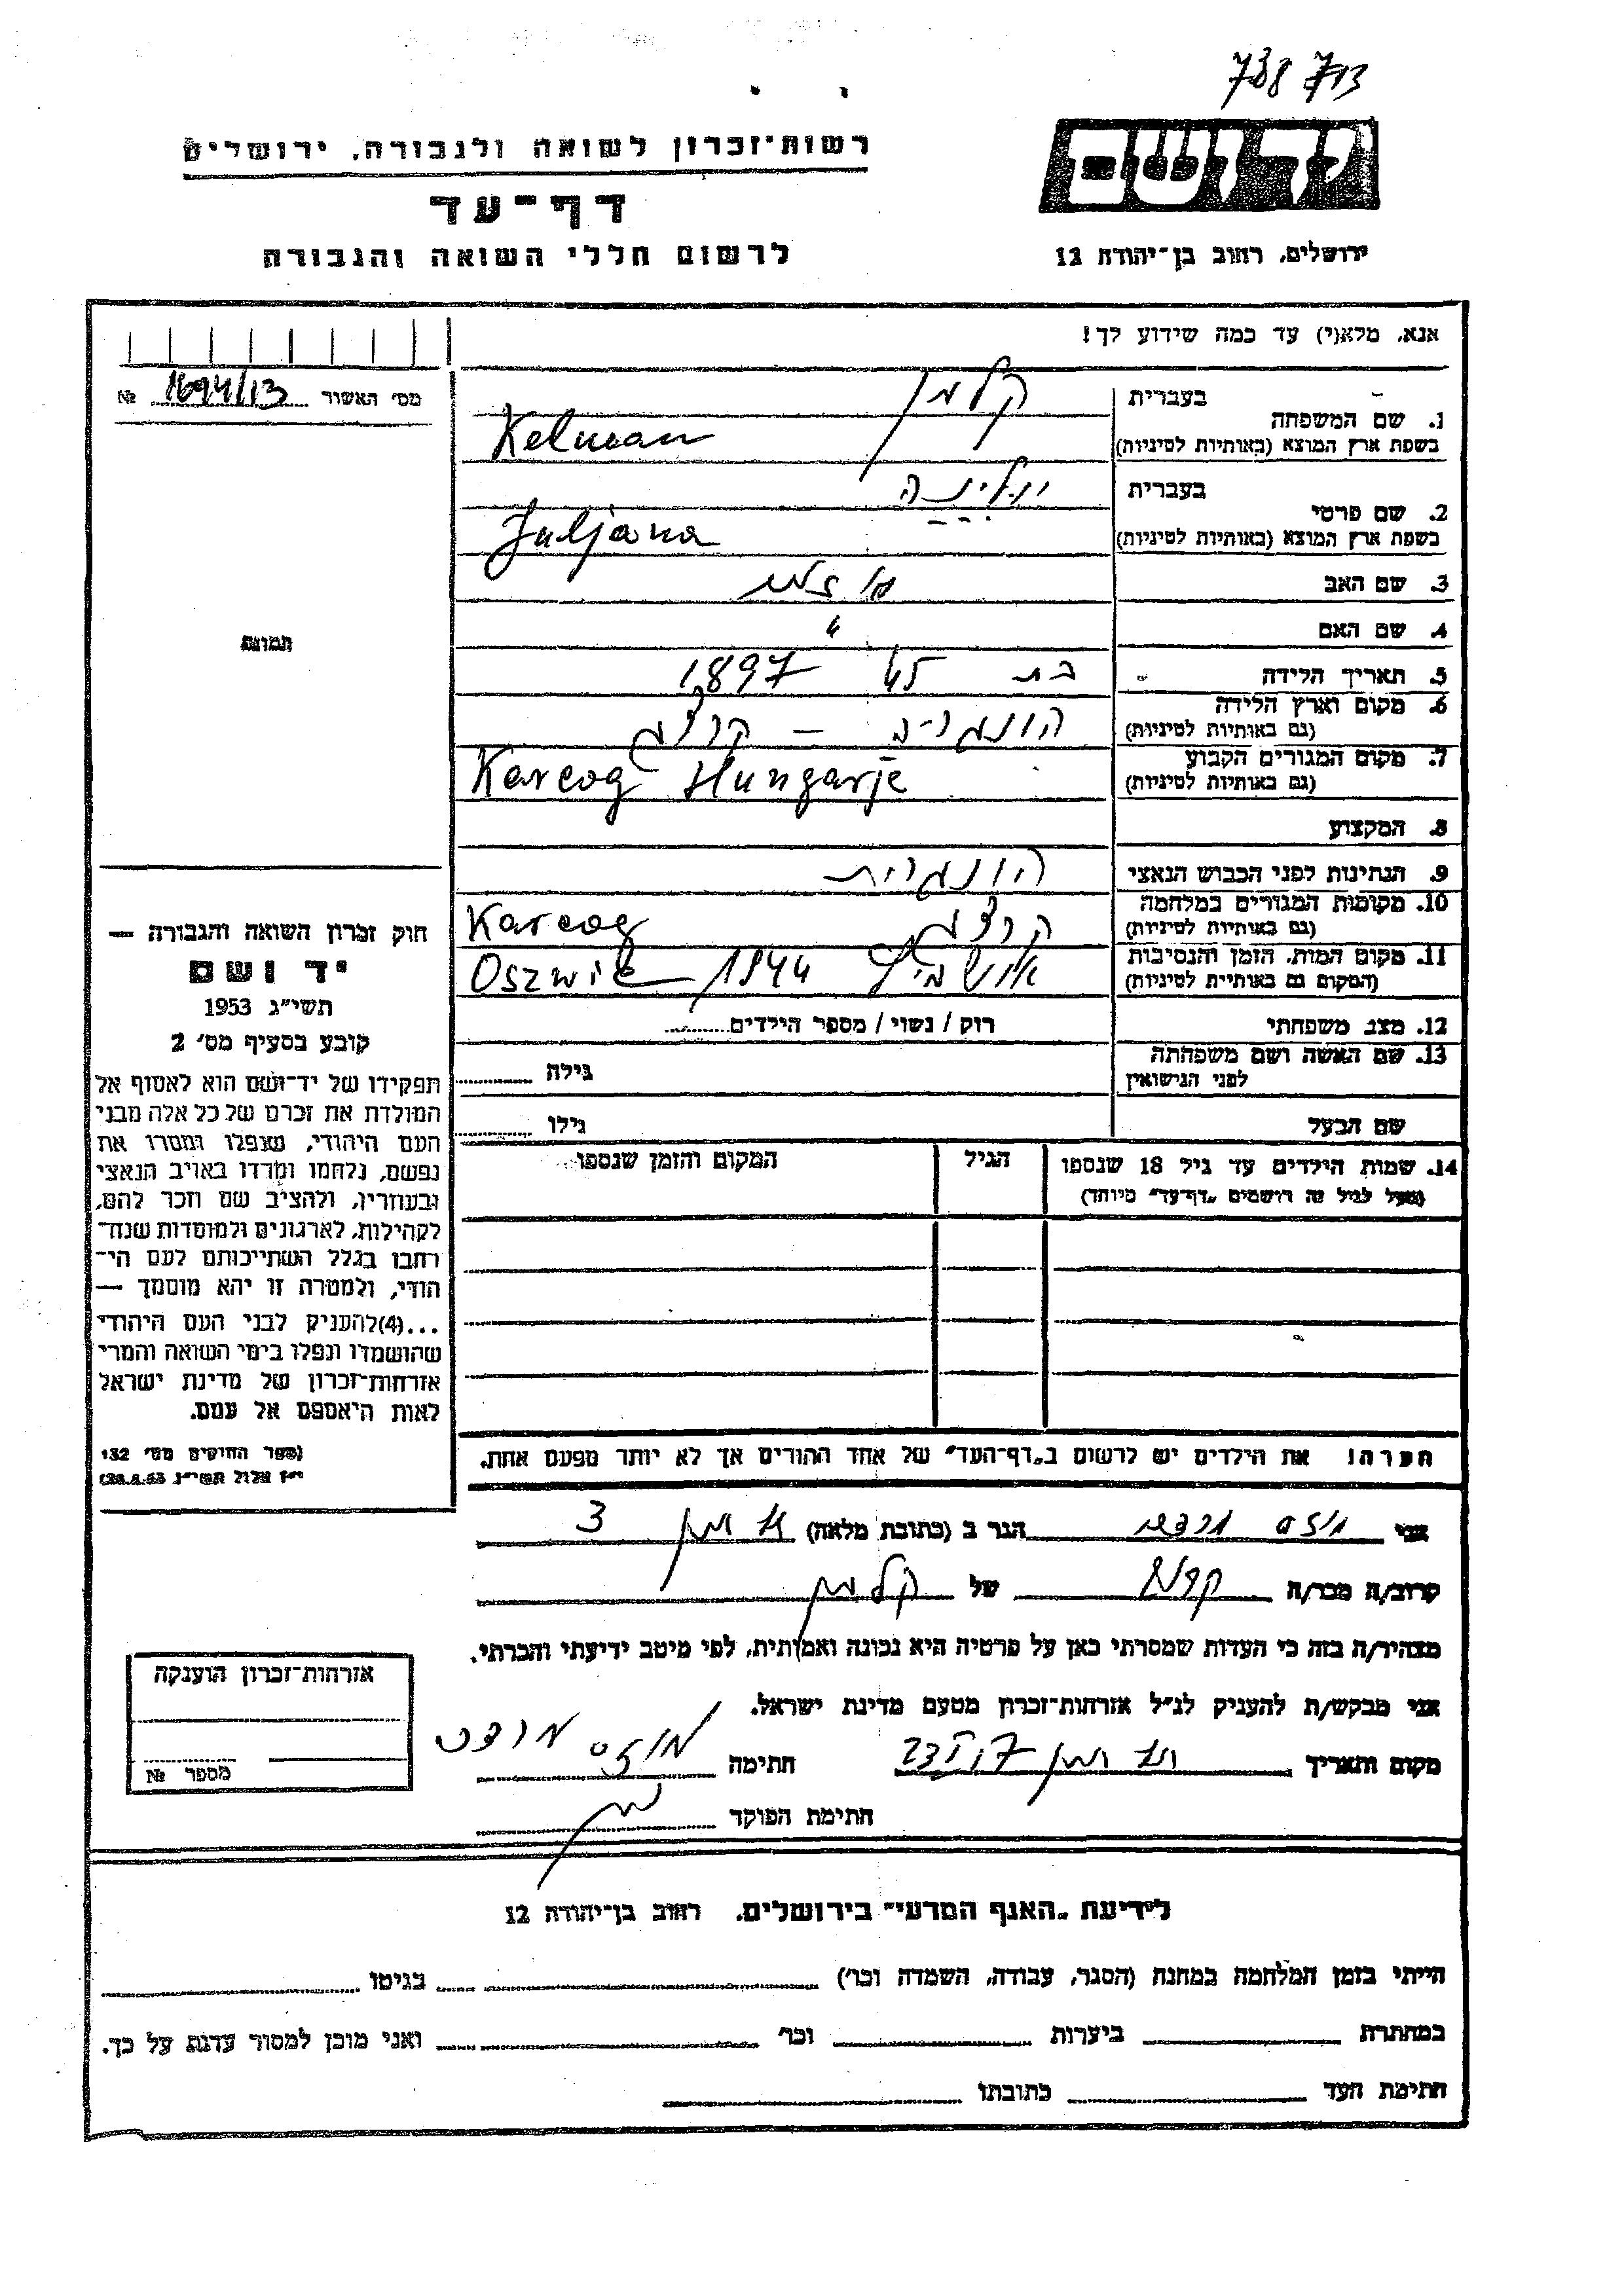 738 713
יד ושם
רשות־זכרון לשואה ולגבורה, ירושלים
דף־עד
לרשום חללי השואה והגבורה
ירושלים, רחוב בן־יהודה 12
אנא, מלא(י) עד כמה שידוע לך!
מס׳ האשור 1694/13 №
בעברית קלמן
1. שם המשפחה
בשפת ארץ המוצא (באותיות לטיניות) Kelman
בעברית יולינה
2. שם פרטי
בשפת ארץ המוצא (באותיות לטיניות) Juljana
3. שם האב
4. שם האם "
תמונה
5. תאריך הלידה בת 45 1897
6. מקום וארץ הלידה הונגריה – קרצג
(גם באותיות לטיניות)
7. מקום המגורים הקבוע Karcog Hungarje
(גם באותיות לטיניות)
8. המקצוע
9. הנתינות לפני הכבוש הנאצי הונגרית
10. מקומות המגורים במלחמה קרצג Karcog
(גם באותיות לטיניות)
11. מקום המות, הזמן והנסיבות 1944
(המקום גם באותיות לטיניות)
12. מצב משפחתי רוק / נשוי / מספר הילדים
13. שם האשה ושם משפחתה גילה
לפני הנישואין
שם הבעל גילו
14. שמות הילדים עד גיל 18 שנספו הגיל המקום והזמן שנספו
(מעל לגיל זה רושמים „דף־עד״ מיוחד)
חוק זכרון השואה והגבורה —
יד ושם
תשי״ג 1953
קובע בסעיף מס׳ 2
תפקידו של יד־ושם הוא לאסוף אל
המולדת את זכרם של כל אלה מבני
העם היהודי, שנפלו ומסרו את
נפשם, נלחמו ומרדו באויב הנאצי
ובעוזריו, ולהציב שם וזכר להם,
לקהילות, לארגונים ולמוסדות שנח־
רבו בגלל השתייכותם לעם הי־
הודי, ולמטרה זו יהא מוסמך —
...(4)להעניק לבני העם היהודי
שהושמדו ונפלו בימי השואה והמרי
אזרחות־זכרון של מדינת ישראל
לאות היאספם אל עמם.
(ספר החוקים מס׳ 132
י״ז אלול תשי״ג 28.8.53)
הערה! את הילדים יש לרשום ב„דף־העד״ של אחד ההורים אך לא יותר מפעם אחת.
אני הגר ב (כתובת מלאה) 3
קרוב/ה מכר/ה של קלמן
מצהיר/ה בזה כי העדות שמסרתי כאן על פרטיה היא נכונה ואמתית, לפי מיטב ידיעתי והכרתי.
אני מבקש/ת להעניק לנ״ל אזרחות־זכרון מטעם מדינת ישראל.
מקום ותאריך חתימה
חתימת הפוקד
אזרחות־זכרון הוענקה
מספר №
לידיעת „האגף המדעי״ בירושלים, רחוב בן־יהודה 12
הייתי בזמן המלחמה במחנה (הסגר, עבודה, השמדה וכו׳) בגיטו
במחתרת ביערות וכו׳ ואני מוכן למסור עדות על כך.
חתימת העד כתובתו